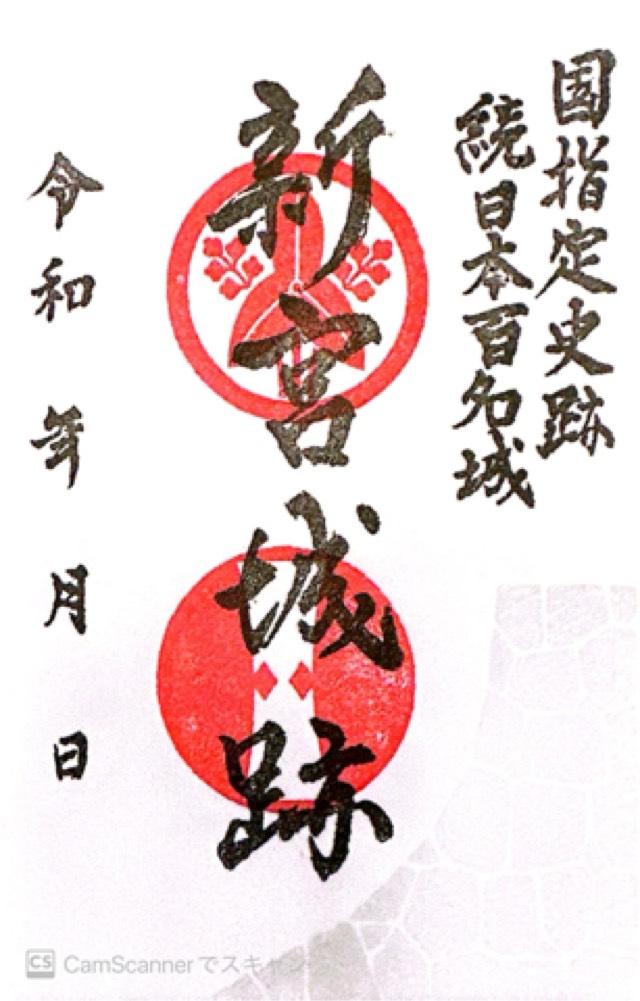 国指定史跡
続日本百名城
新宮城跡
令和 年 月 日
CS CamScannerでスキャン